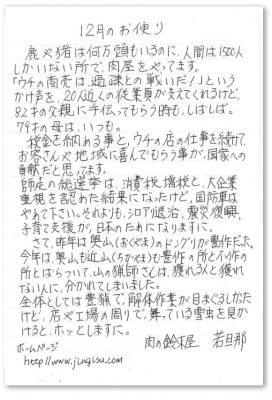 12月のお便り
鹿や猪は何万頭もいるのに、人間は1500人
しかいない所で、肉屋をやってます。
「ウチの商売は、過疎との戦いだ!」という
かけ声を、20人近くの従業員が支えてくれるけど、
82才の父親に手伝ってもらう時も、しばしば。
78才の母は、いつも。
税金を納める事と、ウチの店の仕事を続けて
お客さんや地域に喜んでもらう事が、国家への
貢献だと思ってます。
師走の総選挙は、消費税増税と、大企業
重視を認めた結果になったけど、国防軍は
やめて下さい。それよりも、シロアリ退治、震災復興、
子育て支援が、日本のためになりますに。
さて、昨年は奥山(おくやま)のドングリが豊作だった。
今年は、奥山も近山(ちかやま)も豊作の所と不作の
所とばらついて、山の猟師さんは、獲れる人と獲れ
ない人に、分かれてしまいました。
全体としては豊猟で、解体作業が目まぐるしかった
けど、店や工場の周りで、舞っている雪虫を見か
けると、ホッとしますに。
ホームページ 肉の鈴木屋 若旦那
http://www.jingisu.com/